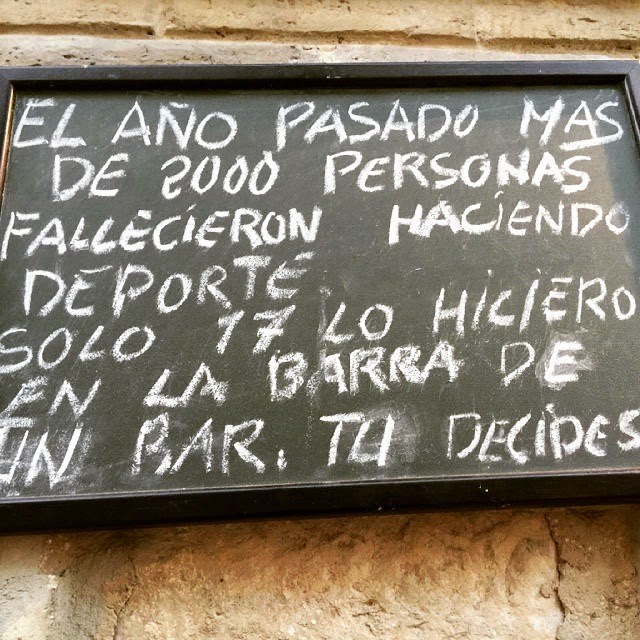 EL AÑO PASADO MAS
DE 2000 PERSONAS
FALLECIERON HACIENDO
DEPORTE.
SOLO 17 LO HICIERO
EN LA BARRA DE
UN BAR. TU DECIDES